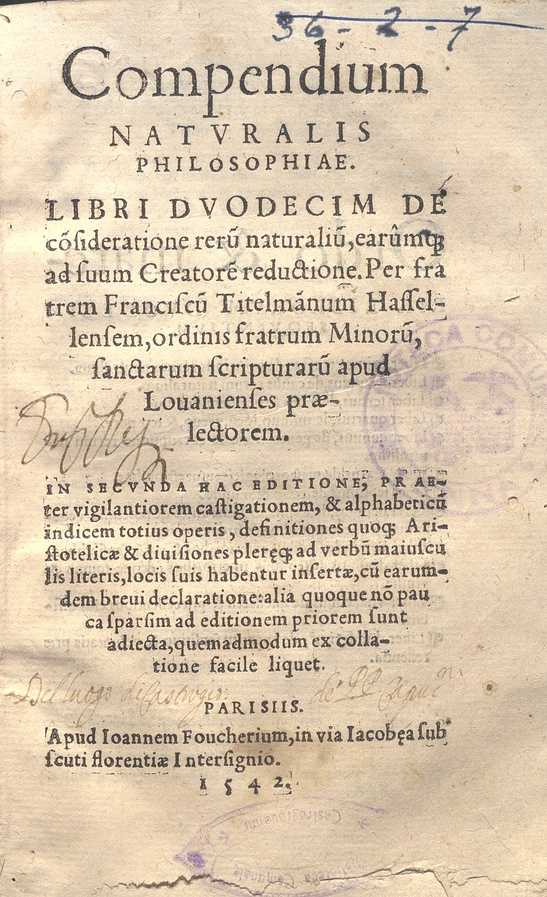 36-2-7
Compendium
NATVRALIS
PHILOSOPHIAE.
LIBRI DVODECIM DE
cõſideratione rerũ naturaliũ, earûmq;
ad ſuum Creatorẽ reductione. Per fra
trem Franciſcũ Titelmãnum Haſſel-
lenſem, ordinis fratrum Minorũ,
ſanctarum ſcripturarũ apud
Louanienſes præ-
lectorem.
IN SECVNDA HAC EDITIONE, PRAE-
ter vigilantiorem caſtigationem, & alphabeticũ
indicem totius operis, definitiones quoq; Ari-
ſtotelicæ & diuiſiones pleręq; ad verbũ maiuſcu
lis literis, locis ſuis habentur inſertæ, cũ earum-
dem breui declaratione: alia quoque nõ pau
ca ſparſim ad editionem priorem ſunt
adiecta, quemadmodum ex colla-
tione facile liquet.
PARISIIS.
Apud Ioannem Foucherium, in via Iacobęa ſub
ſcuti florentiæ Interſignio.
1542.